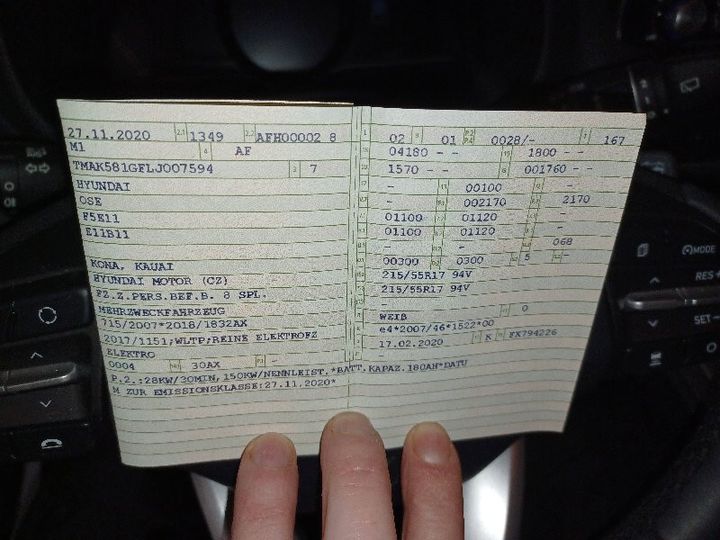 27.11.2020 2.1 1349 2.2 AFH00002 8
M1 4 AF
TMAK581GFLJ007594 3 7
HYUNDAI
OSE
F5E11
E11B11
KONA, KAUAI
HYUNDAI MOTOR (CZ)
FZ.Z.PERS.BEF.B. 8 SPL.
MEHRZWECKFAHRZEUG
715/2007*2018/1832AX
2017/1151;WLTP;REINE ELEKTROFZ
ELEKTRO
0004 30AX -
P.2.:28KW/30MIN,150KW/NENNLEIST.*BATT.KAPAZ.180AH*DATU
M ZUR EMISSIONSKLASSE:27.11.2020*
02 01 0028/- 167
04180 - - 1800 - -
1570 - - 001760 - -
- 00100 -
- 002170 2170
01100 01120 -
01100 01120 -
- - 068
00300 0300 5 -
215/55R17 94V
215/55R17 94V
-
WEIß 0
e4*2007/46*1522*00
17.02.2020 K FX794226
-
MODE
RES
SET